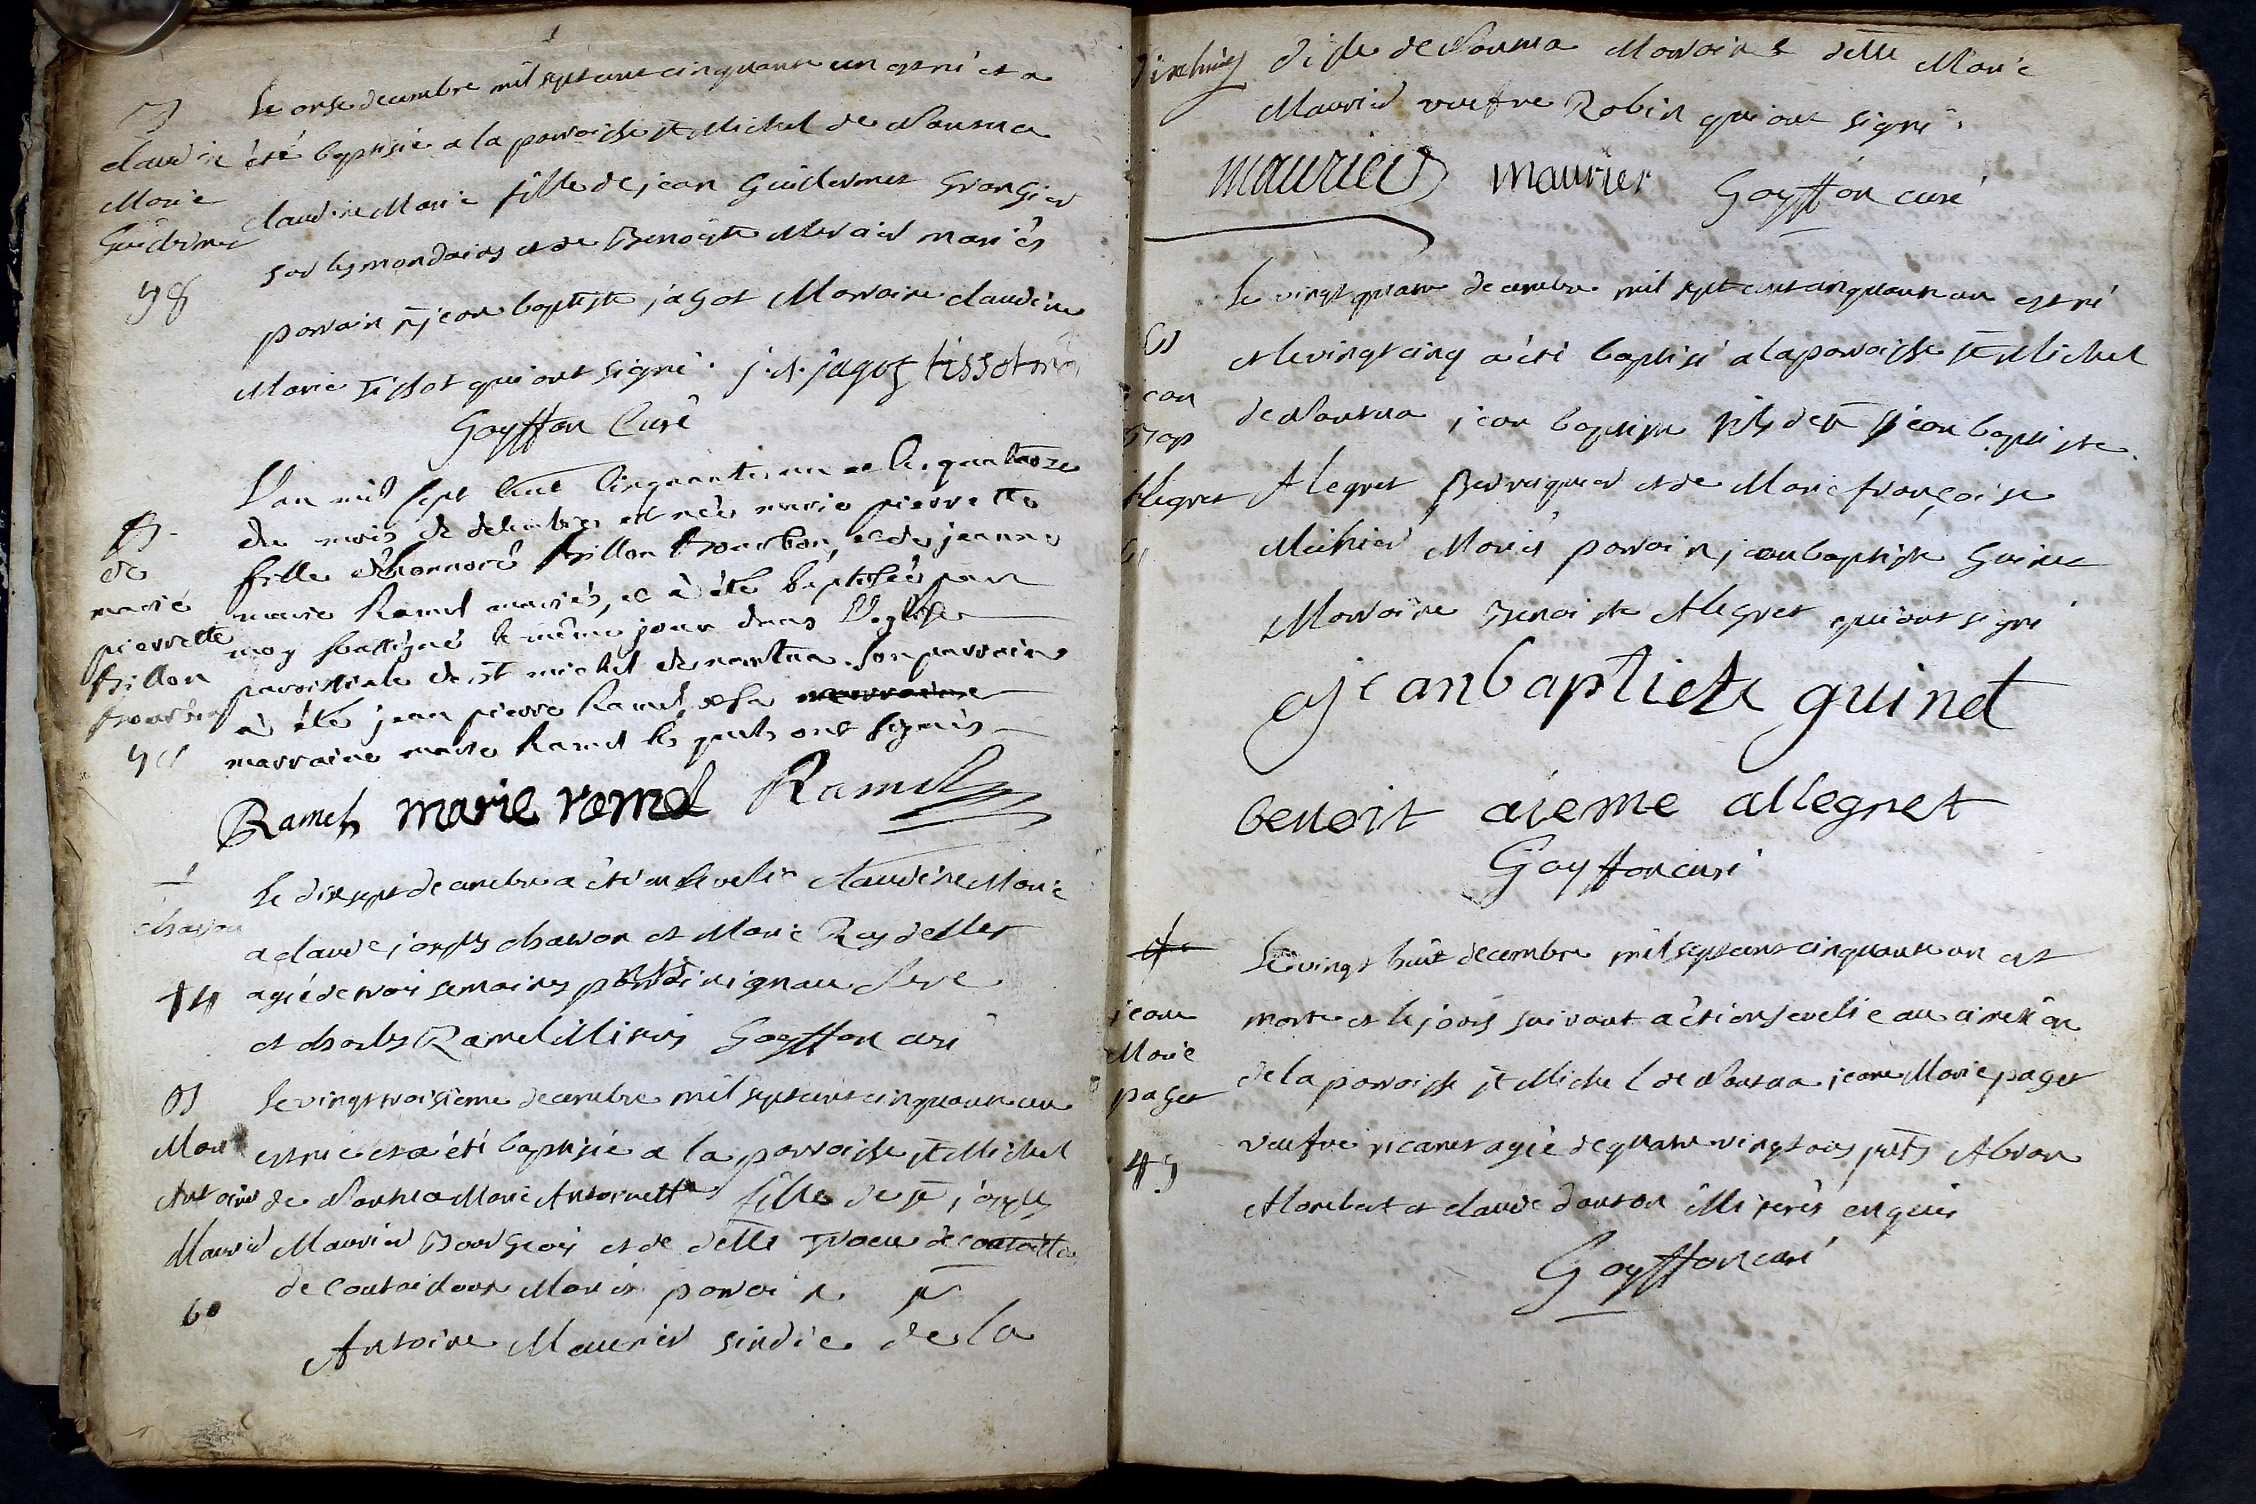 Le onse decembre mil sept cent cinquante un est né et a
B
claudine
Marie
Guillermet
58
été baptisié a la parroisse st Michel de Nantua
claudine Marie fille de jean Guillermet Grangier
sur les mondaires et de Benoite Mercier mariés
parrain sr jean baptiste jagot Marraine claudine
Marie Tissot qui ont signé. j. b. jagot tissot
Goyffon Curé
B
de
marie
pierrette
billon
bourbon
59
L'an mil sept cent cinquante un et le quatorze
du mois de decembre est née marie pierrette
fille d'honnoré billon bourbon, et de jeanne
marie Ramel mariés, et a été baptisée par
moy soussigné le même jour dans l'eglise
paroissiale de st michel de nantua. son parrain
a été jean pierre Ramel, et sa marraine
marraine marie Ramel les quels ont signés
Ramel marie ramel Ramel
chavon
44
Le dix sept decembre a été ensevelie claudine Marie
a claude joseph chavon et Marie Reydellet
agiée de trois semaines
et charles Ramel Goyffon curé
B
Marie
Antoinette
Maurier
60
Le vingt troisieme decembre mil sept cent cinquante un
est née et a été baptisiée a la parroisse st Michel
de Nantua Marie Antoinette fille de sr joseph
Maurier Bourgeois et de delle
de Mariés parrain sr
Antoine Maurier sindic de la
ditte ville de Nantua Marraine delle Marie
Maurier veufve Robin qui ont signé.
Maurier maurier Goyffon curé
B
jean
Bap
Alegret
61
Le vingt quatre decembre mil sept cent cinquante un est né
et le vingt cinq a été baptisé a la parroisse st Michel
de Nantua jean baptiste fils de sr jean baptiste
Alegret Perruquier et de Marie françoise
Mariés parrain jean baptiste Guinet
Marraine Benoiste Alegret qui ont signé
jean baptiete guinet
benoit aieme allegret
Goyffon curé
jeane
Marie
paget
45
Le vingt huit decembre mil sept cent cinquante un est
morte et le jour suivant a été ensevelie au cimetiere
de la parroisse st Michel de Nantua jeane Marie paget
veufve agiée de quatre vingt ans
et claude enquis
Goyffon curé